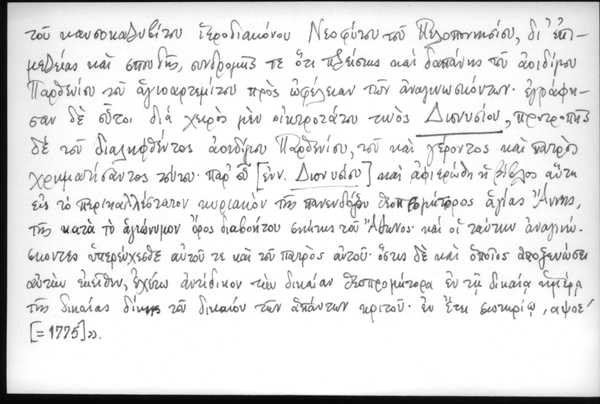 τοῦ καυσοκαλυβίτου ἱεροδιακόνου Νεοφύτου τοῦ Πελοποννησίου, δι' ἐπι-
μελείας καὶ σπουδῆς, συνδρομῆς τε ὅτι πλείστης καὶ δαπάνης τοῦ ἀοιδίμου
Παρθενίου τοῦ ἁγιοαρτεμίτου πρὸς ὠφέλειαν τῶν ἀναγινωσκόντων. ἐγράφη-
σαν δὲ οὗτοι διὰ χειρὸς μὲν οἰκτροτάτου τινὸς Διονυσίου, προτροπῆς
δὲ τοῦ διαληφθέντος ἀοιδίμου Παρθενίου, τοῦ καὶ γέροντος καὶ πατρὸς
χρηματίσαντος τούτου· παρ' οὗ [ἐνν. Διονυσίου] καὶ ἀφιερώθη ἡ βίβλος αὕτη
εἰς τὸ περικαλλέστατον κυριακὸν τῆς πανενδόξου θεοπρομήτορος ἁγίας Ἄννης,
τῆς κατὰ τὸ ἁγιώνυμον ὄρος διαβοήτου σκήτης τοῦ Ἄθωνος· καὶ οἱ ταύτην ἀναγινώ-
σκοντες ὑπερεύχεσθε αὐτοῦ τε καὶ τοῦ πατρὸς αὐτοῦ· ὅστις δὲ καὶ ὁποῖος ἀποξενώσει
αὐτὴν ἐκεῖθεν, ἐχέτω ἀντίδικον τὴν δικαίαν θεοπρομήτορα ἐν τῇ δικαίᾳ ἡμέρᾳ
τῆς δικαίας δίκης τοῦ δικαίου τῶν ἁπάντων κριτοῦ· ἐν ἔτει σωτηρίῳ, αψοε΄
[= 1775]».